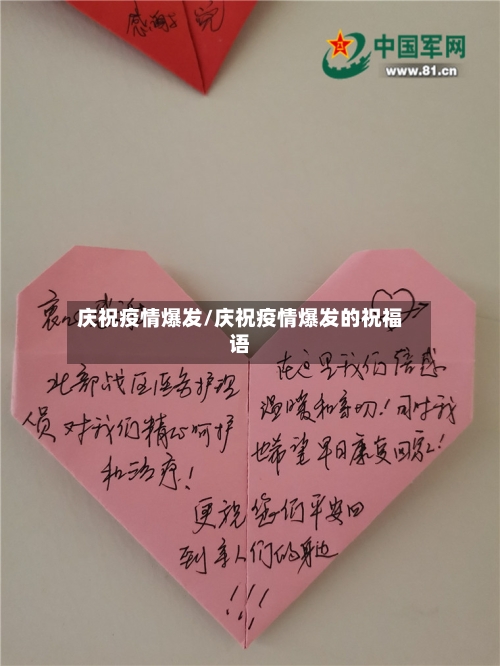 感谢
中国军网
www.81.cn
庆祝疫情爆发/庆祝疫情爆发的祝福
语
北部战区医务护理
人员对我们精心呵护
和治疗!
在这里我们倍感
温暖和亲切!同时我
也希望早日康复回家!
更祝您们平安回
到亲人们的身边
!!!